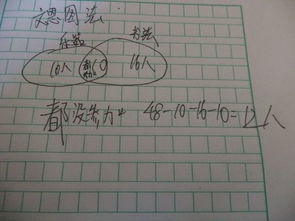 文恩图法
乐器 书法
10人 都 10 16人
都没参加 48-10-16-10=12人